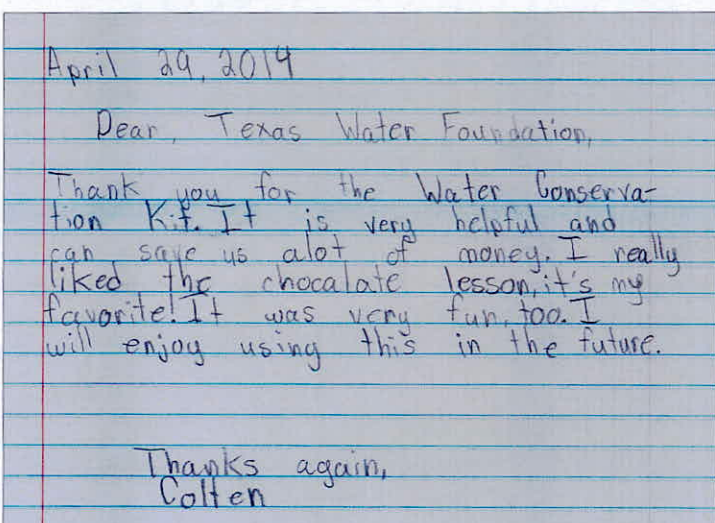 April 29, 2014
Dear, Texas Water Foundation,
Thank you for the Water Conserva-
tion Kit. It is very helpful and
can save us alot of money. I really
liked the chocalate lesson, it's my
favorite! It was very fun, too. I
will enjoy using this in the future.
Thanks again,
Colten